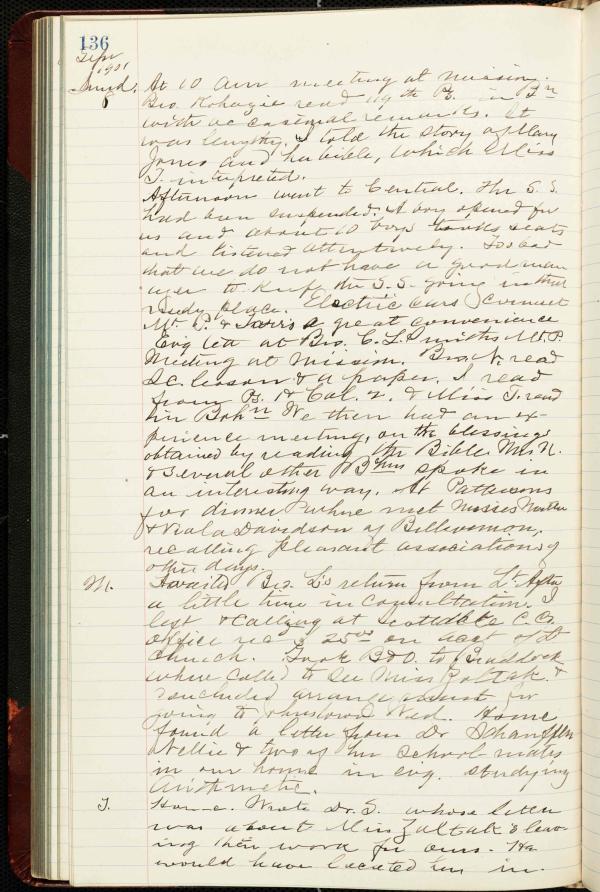 136
Sept
1901
Sund. At 10 am meeting at mission.
8 Bro. read 119th Ps. in Bn
with occasional remarks. It
was lengthy. I told the story of Mary
Jones and her bible, which Miss
T. interpreted.
Afternoon went to Central. The S. S.
had been suspended. A boy opened for
us and about 10 boys took seats
and listened attentively. Too bad
that we do not have a good man
to keep the S.S. going in that
needy place. Electric cars connect
Mt. P. & a great convenience
Evg tea at Bro. C. L. Smiths Mt. P.
Meeting at Mission. Bro. N. read
S.C. lesson & a paper. I read
from Ps. 1 & Col. 2. & Miss T. read
in Bohn We then had an ex-
perience meeting, on the blessings
obtained by reading the Bible. Mrs. N.
& several other spoke in
an interesting way. At Pattersons
for dinner where met Misses
& Viola Davidson of Bellevernon,
recalling pleasant associations of
other days.
M. Awaited Bro. L's return from
a little time in consultation. I
left & calling at Scottdale C. Co.
office recd $25.00 on acct of
church. Took B&O. to Braddock
where called to see Miss &
concluded arrangement for
going to Johnstown Wed. Home
found a letter from Dr Schauffler
Nellie & two of her school mates
in our home in evg. studying
arithmetic.
T. Home. Wrote Dr. S. whose letter
was about Miss & leav-
ing their work for ours. He
would have located her in